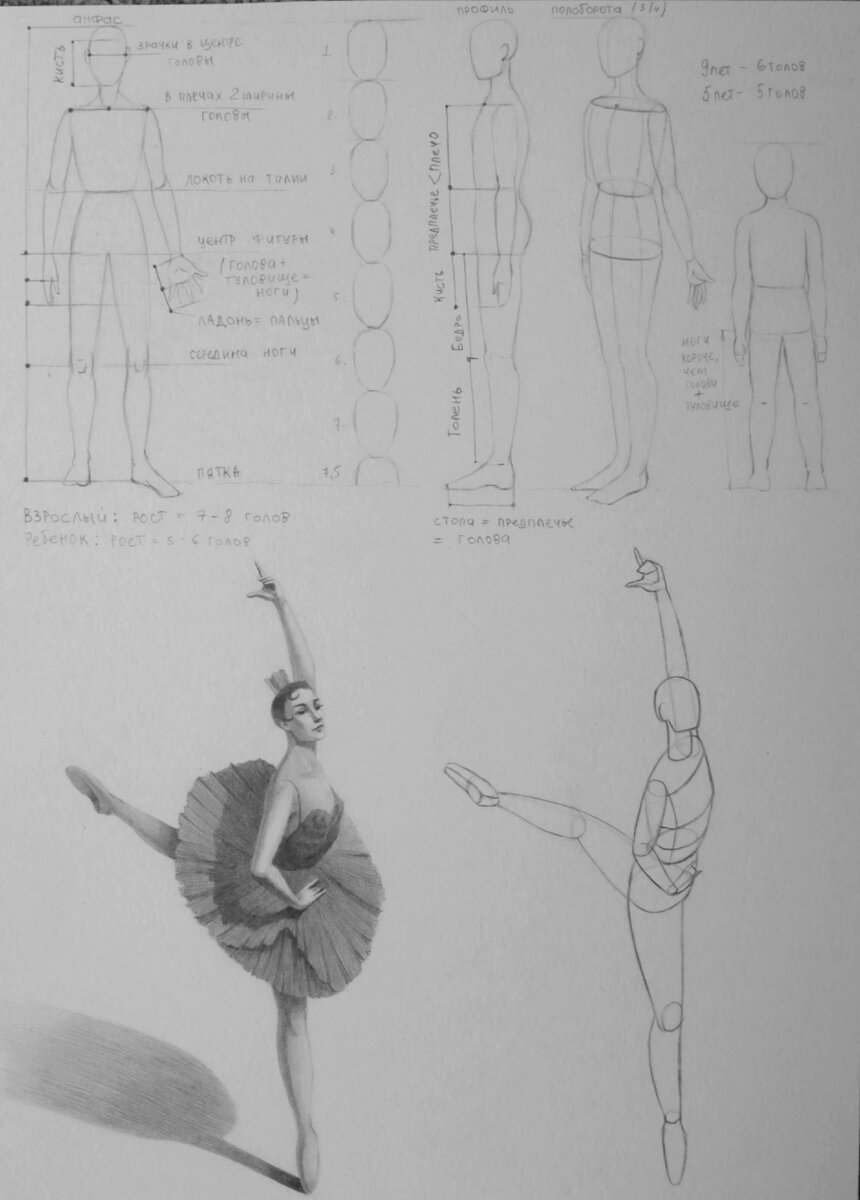 анфас
кисть
зрачки в центре
головы
в плечах 2 ширины
головы
локоть на талии
центр фигуры
(голова +
туловище =
ноги)
ладонь = пальцы
середина ноги
пятка
1.
2.
3
4
5.
6.
7.
7,5
взрослый: рост = 7-8 голов
ребенок: рост = 5-6 голов
профиль
предплечье < плечо
кисть
бедро
голень
стопа = предплечье
= голова
полоборота (3/4)
9 лет - 6 голов
5 лет - 5 голов
ноги
короче,
чем
голова
+
туловище